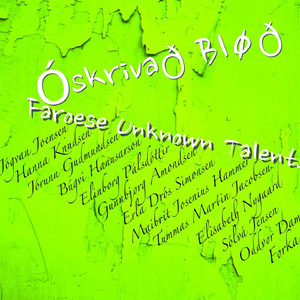 Óskrivað Bløð
Faroese Unknown Talents
Jógvan Joensen
Hanna Knudsen
Jórunn Gudmundsen
Búgvi Hansarson
Elinborg Pálsdóttir
Gunnbjørg Amondsen
Erla Drós Simonsen
Maibrit Josenius Hammer
Tummas Martin Jacobsen
Elisabeth Nygaard
Sólvá Jensen
Oddvør Dam
Forka